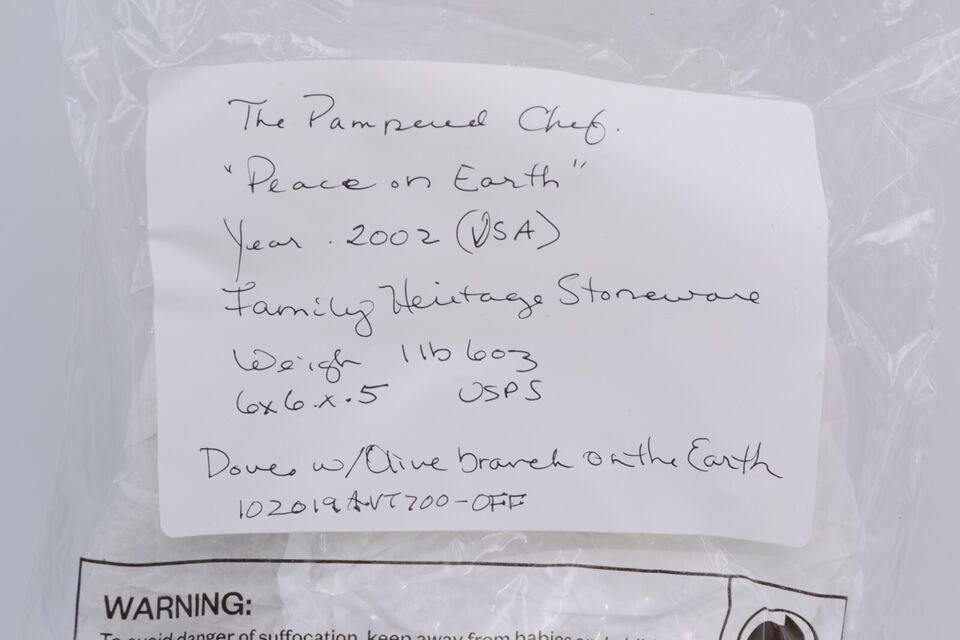 The Pampered Chef.
"Peace on Earth"
Year . 2002 (USA)
Family Heritage Stoneware
Weigh 1lb 6oz
6x6.x.5 USPS
Doves w/Olive branch on the Earth
102019AVT700-OFF
WARNING:
To avoid danger of suffocation, keep away from babies and